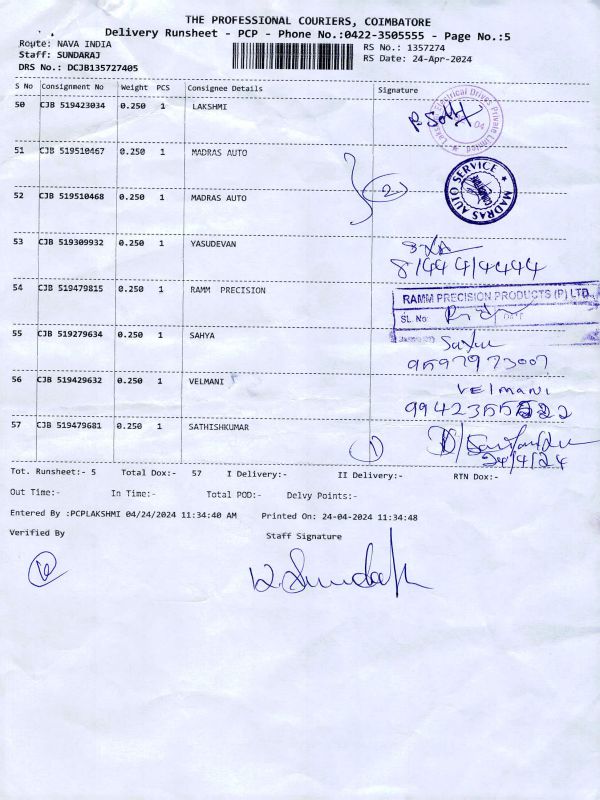 THE PROFESSIONAL COURIERS, COIMBATORE
Delivery Runsheet - PCP - Phone No.:0422-3505555 - Page No.:5
Route: NAVA INDIA
RS No.: 1357274
Staff: SUNDARAJ
RS Date: 24-Apr-2024
DRS No.: DCJB135727405
S No Consignment No Weight PCS Consignee Details Signature
50 CJB 519423034 0.250 1 LAKSHMI
Electrical Drives Private Limited
04
51 CJB 519510467 0.250 1 MADRAS AUTO
2
MADRAS AUTO SERVICE
52 CJB 519510468 0.250 1 MADRAS AUTO
53 CJB 519309932 0.250 1 YASUDEVAN
54 CJB 519479815 1 RAMM PRECISION
RAMM PRECISION PRODUCTS (P) LTD.
SL. No: DATE
55 CJB 519279634 0.250 1 SAHYA
9597973007
56 CJB 519429632 0.250 1 VELMANI
VELMANI
57 CJB 519479681 0.250 1 SATHISHKUMAR
1
24/4/24
Tot. Runsheet:- 5 Total Dox:- 57 I Delivery:- II Delivery:- RTN Dox:-
Out Time:- In Time:- Total POD:- Delvy Points:-
Entered By :PCPLAKSHMI 04/24/2024 11:34:40 AM Printed On: 24-04-2024 11:34:48
Verified By Staff Signature